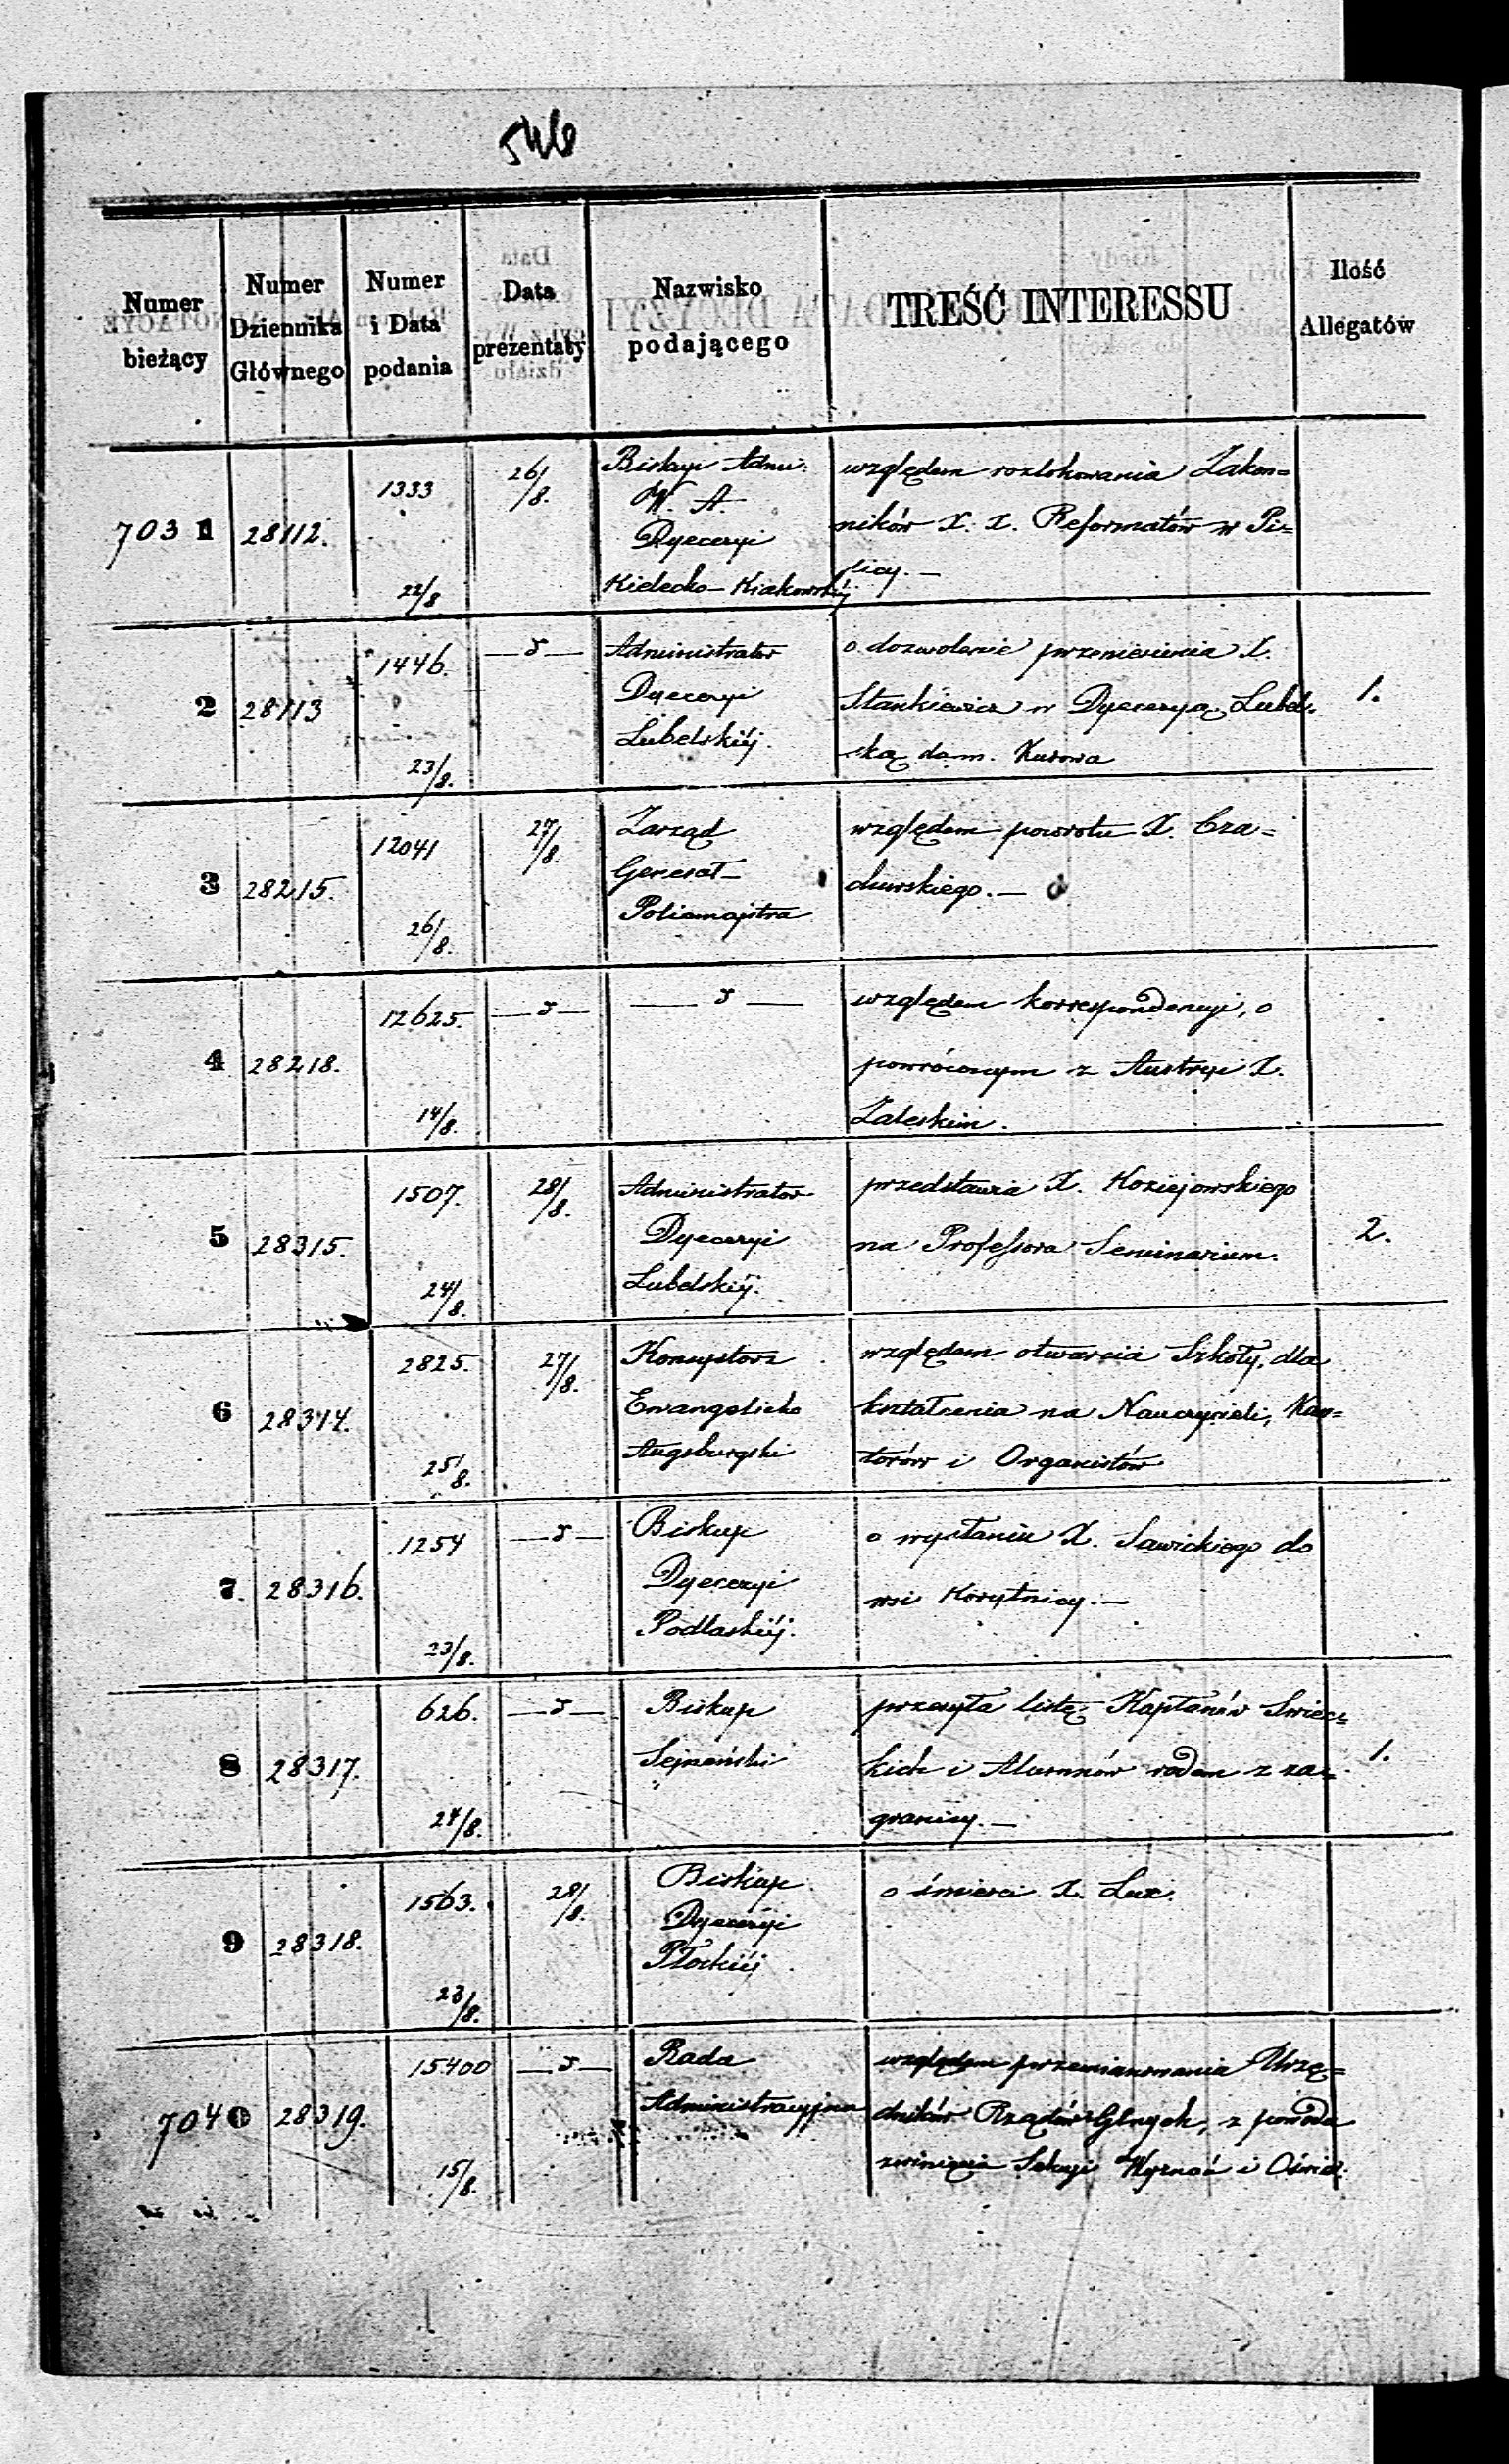 546
Numer bieżący
Numer Dziennika Głównego
Numer i Data podania
Data prezentaty
Nazwisko podającego
TREŚĆ INTERESSU
Ilość Allegatów
7031
28112.
1333
22/8
26/8.
Biskup Admi:
W. A.
Dyecezyi
Kielecko-Krakowskiéj
względem rozlokowania Zakon=
ników X. X. Reformatów w Pi=
licy. —
2
28113
1446.
23/8.
—"—
Administrator
Dyecezyi
Lubelskiéj.
o dozwolenie przeniesienia X.
Stankiewicza w Dyecezyą Lubel=
ską do m. Kurowa
1.
3
28215.
12041
26/8.
27/8.
Zarząd
Generał-
Policmajstra
względem powrotu X. Cza=
durskiego. —
4
28218.
12625.
14/8.
—"—
—"—
względem korrespondencyi, o
powróconym z Austryi X.
Zaleskim.
5
28315.
1507.
24/8.
28/8.
Administrator
Dyecezyi
Lubelskiéj.
przedstawia X. Koziejowskiego
na Professora Seminarium.
2.
6
28344.
2825.
25/8.
27/8.
Konsystorz
Ewangelicko
Augsburgski
względem otwarcia Szkoły, dla
kształcenia na Nauczycieli, Kan=
torów i Organistów
7.
28316.
1254
23/8.
—"—
Biskup
Dyecezyi
Podlaskiéj.
o wysłaniu X. Sawickiego do
wsi Korytnicy. —
8
28317.
626.
24/8.
—"—
Biskup
Sejneński
przesyła listę Kapłanów Swiec=
kich i Alumnów rodem z za=
granicy. —
1.
9
28318.
1563.
23/8.
28/8.
Biskup
Dyecezyi
Płockiéj
o śmierci X. Lux.
7040
28319.
15400
15/8.
—"—
Rada
Administracyjna
względem przemianowania Urzę=
dników Rządów Glnych, z powodu
zwinięcia Sekcyi Wyznań i Oświe: